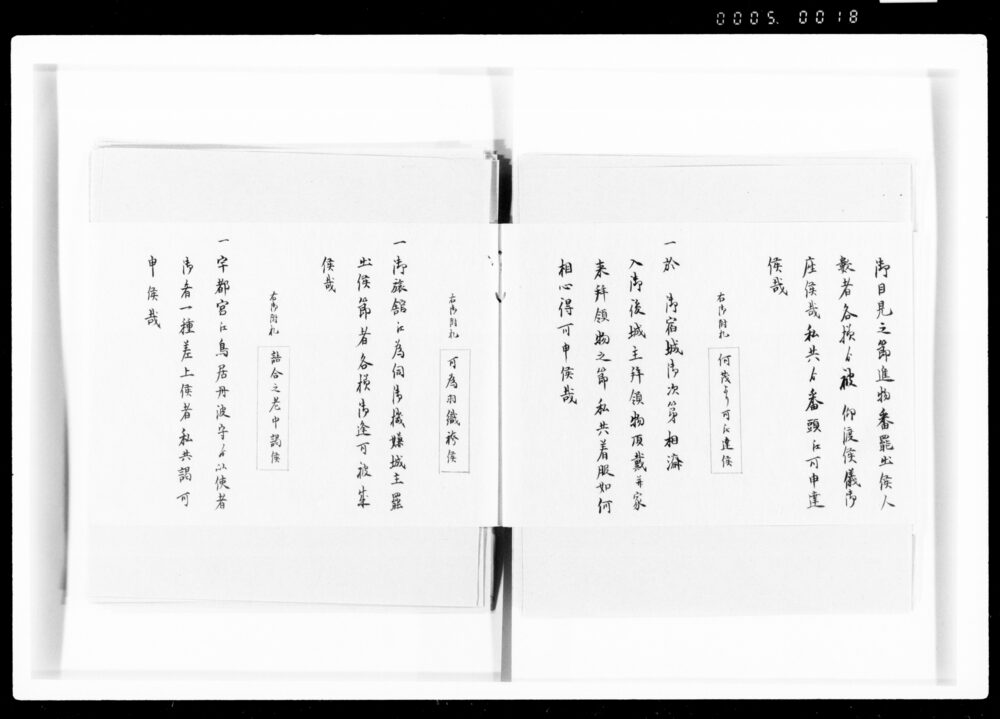 0005. 0018
御目見之節進物番罷出候人
数者各様ゟ被 仰渡候儀御
座候哉私共ゟ番頭江可申達
候哉
右御附札
何茂より可江達候
一於 御宿城御次第相済
入御後城主拝領物頂戴并家
来拝領物之節私共着服如何
相心得可申候哉
右御附札
可為羽織袴候
一御旅館江為伺御機嫌城主罷
出候節者各様御逢可被成
候哉
右御附札
詰合之老中謁候
一宇都宮江鳥居丹波守ゟ以使者
御肴一種差上候者私共謁可
申候哉